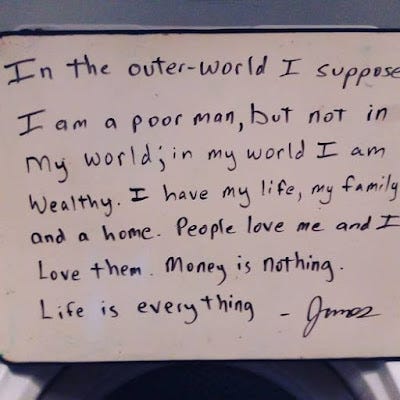 In the outer-world I suppose
I am a poor man, but not in
my world; in my world I am
wealthy. I have my life, my family
and a home. People love me and I
Love them. Money is nothing.
Life is everything -